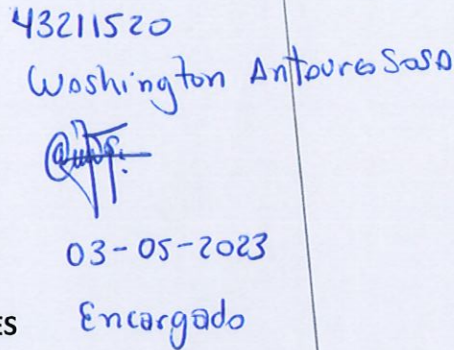 43211520
Washington Antoures Sosa
03-05-2023
Encargado
ES